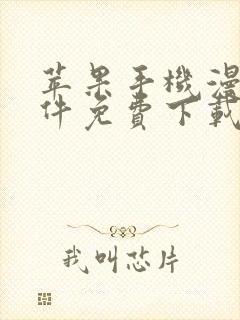 苹果手機漫
件免費下載
我叫芯片